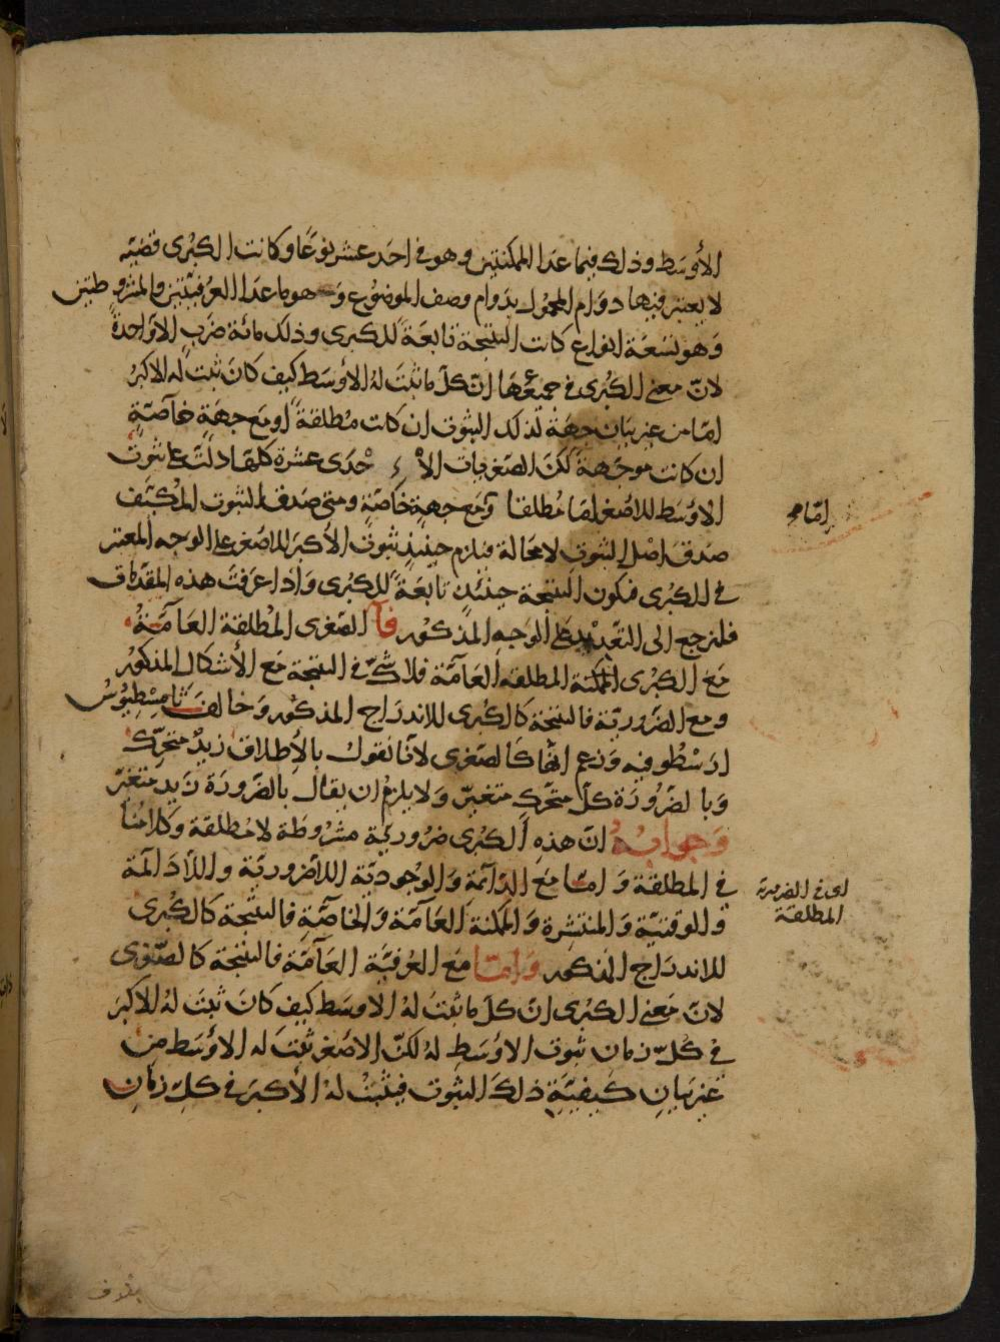 الأوسط وذلك فيما عدا الممكنتين وهو في احد عشر نوعًا وكانت الكبرى قضيّه
لا يعتبر فيها دوام المحمول بدوام وصف الموضوع وهو ما عدا العرفيّتين والمشروطتين
وهو تسعة انواع كانت النتيجة تابعةً للكبرى وذلك مائة ضرب الا واحدةً
لانّ معنى الكبرى في جميعها انّ كلّ ما ثبت له الأوسط كيف كان ثبت له الاكبر
امّا من غير بيان جهة لذلك الثبوت ان كانت مطلقةً او مع جهةٍ خاصّةٍ
ان كانت موجّهةً لكنّ الصغريات الاحدى عشرة كلها دلّت على ثبوت
الاوسط للاصغر امّا مطلقا او مع جهةٍ خاصّةٍ ومتى صدق الثبوت المكيّف
صدق اصل الثبوت لا محالة فيلزم حينئذٍ ثبوت الأكبر للاصغر على الوجه المعتبر
في الكبرى فيكون النتيجة حينئذٍ تابعةً للكبرى واذا عرفت هذه المقدمات
فلنرجع الى على الوجه المذكور فا الصغرى المطلقة العامّة
مع الكبرى الممكنة المطلقة العامّة فلا شكّ في النتيجة مع الأشكال المذكور
ومع الضروريّة فالنتيجة كالكبرى للاندراج المذكور وخالف ثامسطيوس
ارسطو فيه وزعم انّها كالصغرى لانّا نقول بالإطلاق زيدٌ متحرّك
وبالضرورة كلّ متحرّك متغيّر ولا يلزم ان يقال بالضرورة زيد متغيّر
وجوابه انّ هذه الكبرى ضروريّة مشروطة لا مطلقة وكلامنا
في المطلقة وامّا مع الدّائمة والوجوديّة اللاضروريّة واللّادائمة
والوقتيّة والمنتشرة والممكنة العامّة والخاصّة فالنتيجة كالكبرى
للاندراج المذكور وامّا مع العرفيّة العامّة فالنتيجة كالصّغرى
لانّ معنى الكبرى انّ كلّ ما ثبت له الاوسط كيف كان ثبت له الاكبر
في كلّ زمان ثبوت الاوسط له لكنّ الاصغر ثبت له الاوسط من
غير بيان كيفيّة ذلك الثبوت فيثبت له الأكبر في كلّ زمان
امّا مع
اى في الضرورية
المطلقة